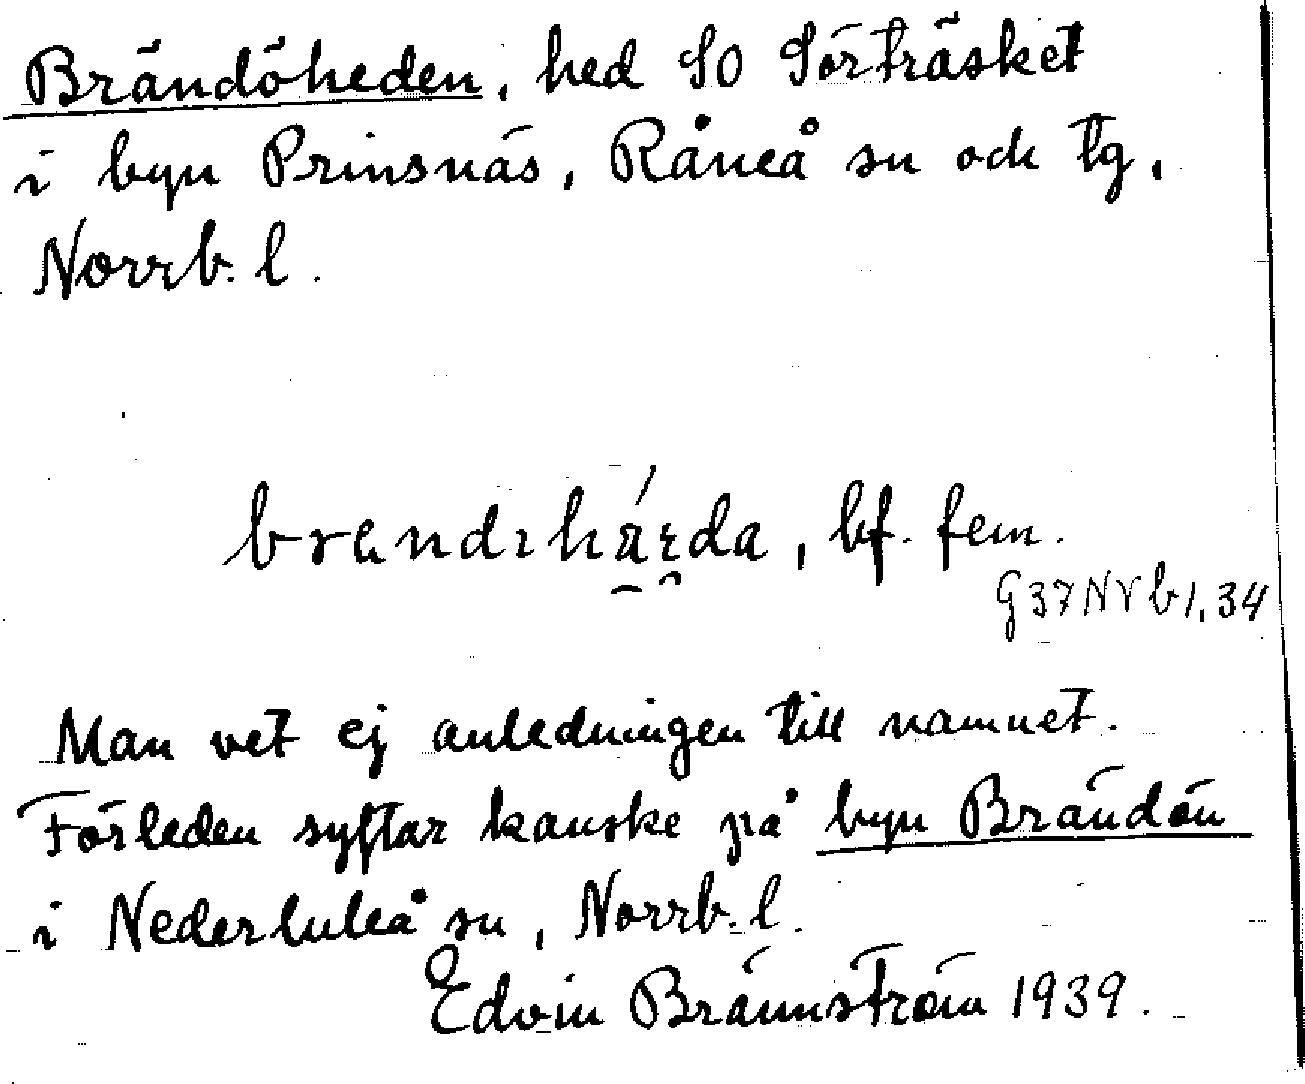 Brändöheden, hed SO Sörträsket
i byn Prinsnäs, Råneå sn och tg,
Norrb. l.
bf. fem.
G37NVb1,34
Man vet ej anledningen till namnet.
Förleden syftar kanske på byn Brändön
i Nederluleå sn, Norrb. l.
Edvin Brännström 1939.